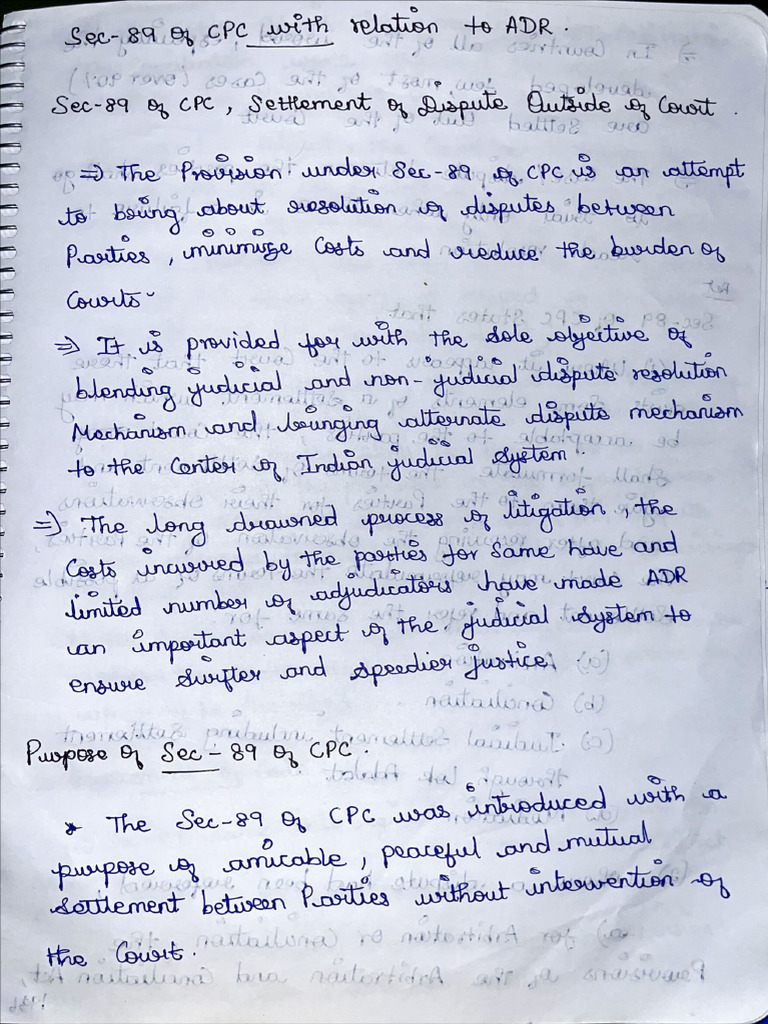 Sec-89 of CPC with relation to ADR.
Sec-89 of CPC, Settlement of Dispute Outside of Court.
⇒ The Provision under Sec-89 of CPC is an attempt
to bring about resolution of disputes between
Parties, minimize Costs and reduce the burden of
Courts
⇒ It is provided for with the sole objective of
blending judicial and non-judicial dispute resolution
Mechanism and bringing alternate dispute mechanism
to the Center of Indian judicial System.
⇒ The long drawned process of litigation, the
Costs incurred by the parties for Same have and
limited number of adjudicators have made ADR
an important aspect of the judicial System to
ensure Swifter and Speedier Justice.
Purpose of Sec-89 of CPC.
* The Sec-89 of CPC was introduced with a
purpose of amicable, peaceful and mutual
Settlement between Parties without intervention of
the Court.